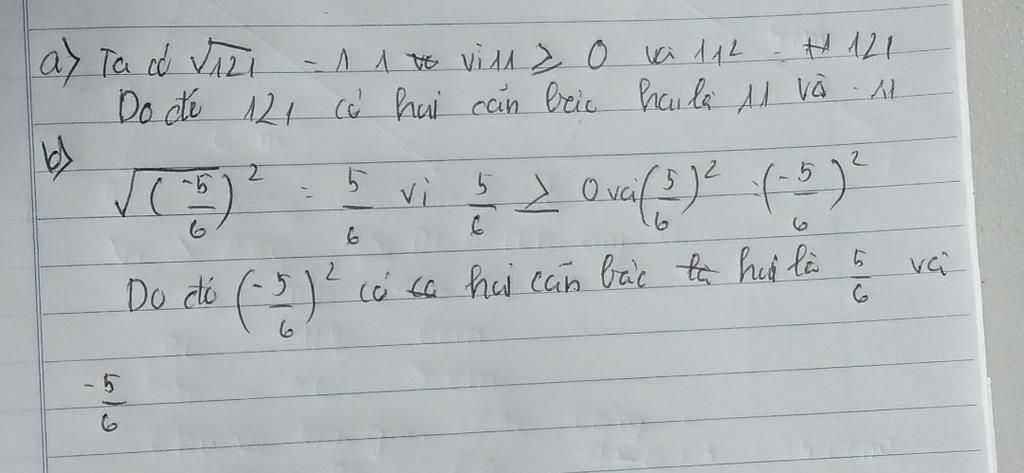 a) Ta có √121 = 11 vì 11 ≥ 0 và 11² = 121
Do đó 121 có hai căn bậc hai là 11 và -11
b)
√(-5/6)² = 5/6 vì 5/6 ≥ 0 và (5/6)² = (-5/6)²
Do đó (-5/6)² có hai căn bậc hai là 5/6 và
-5/6